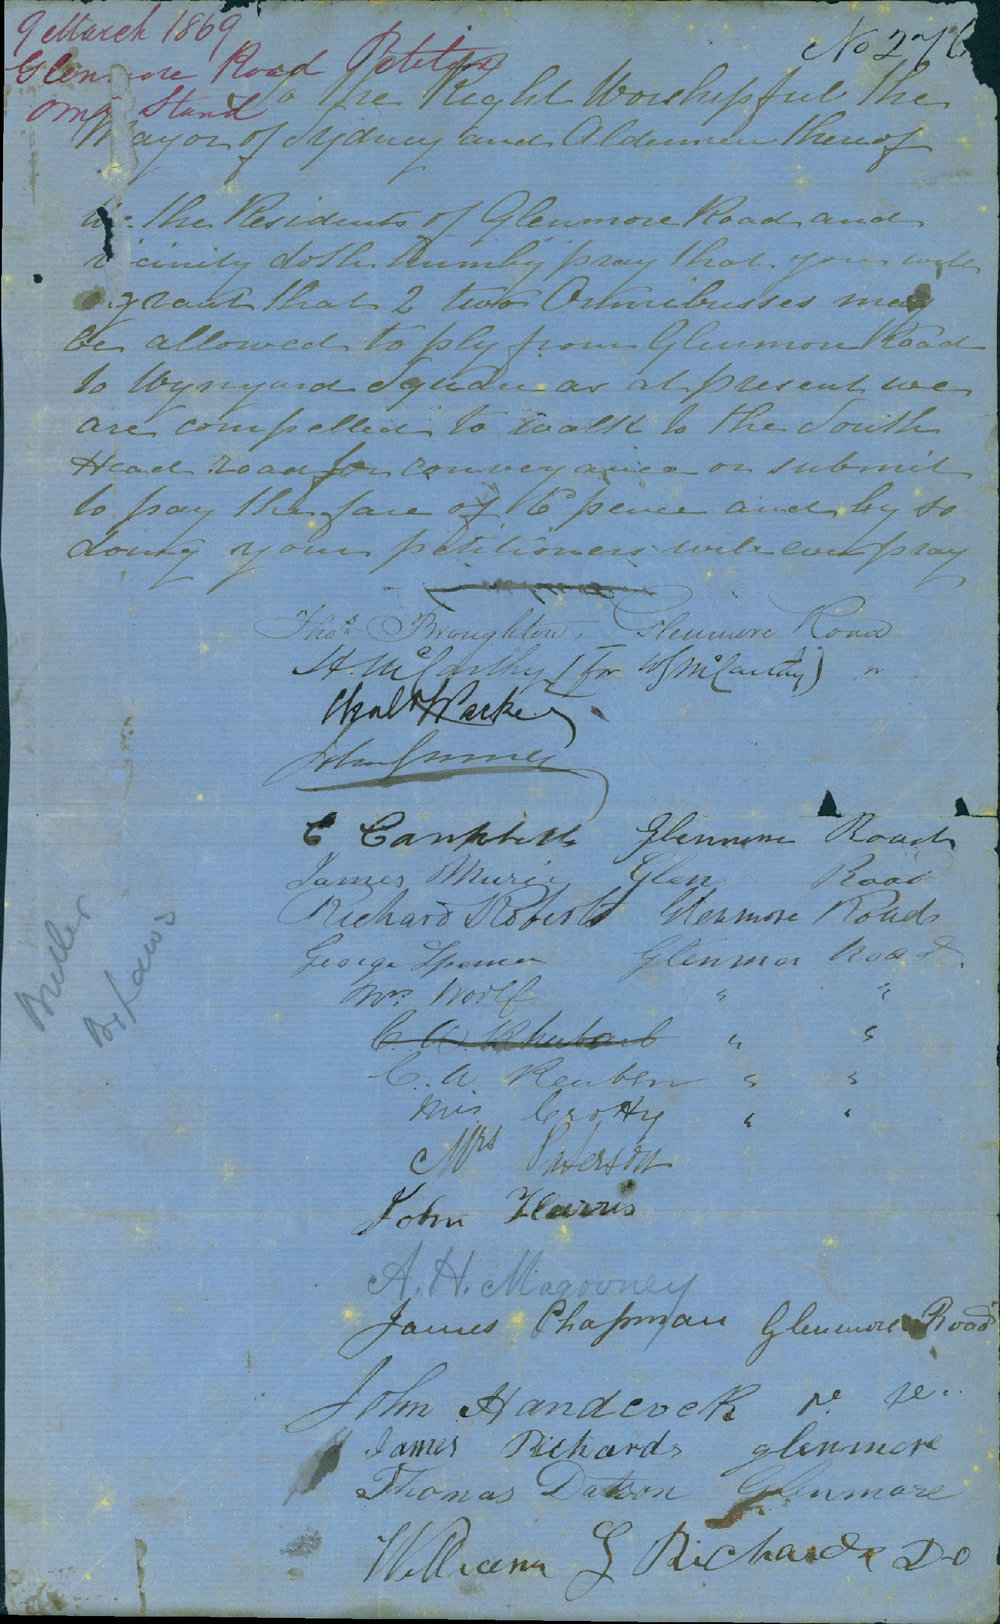 9 March 1869
Glenmore Road Petition
Omn Stand
No 276
To the Right Worshipful the
Mayor of Sydney and Aldermen thereof
We the Residents of Glenmore Road and
vicinity doth humbly pray that you will
grant that 2 two Omnibusses may
be allowed to ply from Glenmore Road
to Wynyard Square as at present we
are compelled to walk to the South
Head road for conveyance or submit
to pay the fare of 6 pence and by so
doing your petitioners will ever pray
Thos Broughton, Glenmore Road
H. McCarthy (for W J McCarthy) "
John
C Campbell Glenmore Road
James Muir Glen Road
Richard Roberts Glenmore Road
George Spencer Glenmor Road.
Mrs Woolf " "
C. A. Rhubarb " "
C. A. Reuben " "
Mrs Crotty " "
Mrs Peterson
John Harris
A. H. Magooney
James Chapman Glenmore Road
John Handcock
James Richards glenmore
Thomas Datson Glenmore
William G Richards Do
Butler
By Laws